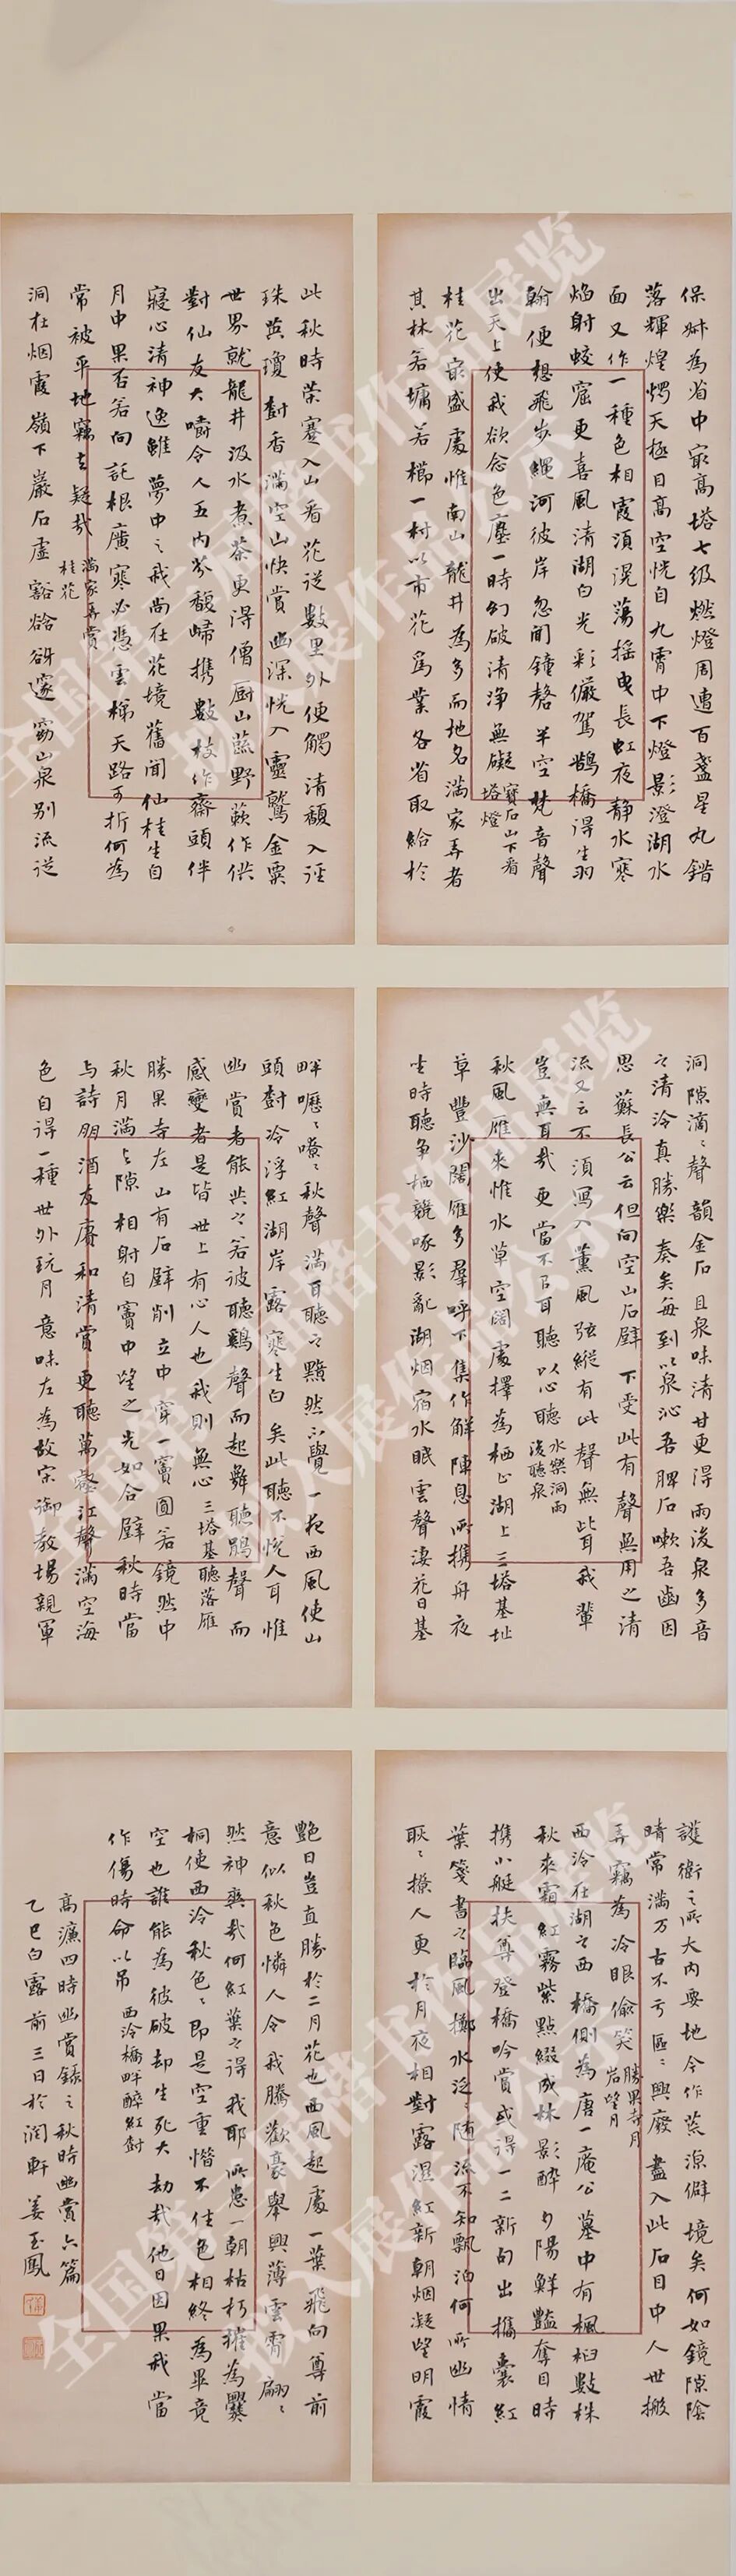 保叔為省中最高塔七級燃燈周遭百盞星丸錯
落輝煌愕天極目高空恍自九霄中下燈影澄湖水
面又作一種色相霞須滉蕩摇曳長虹夜靜水寒
焰射蛟窟更喜風清湖白光彩儼駕鵲橋得生羽
翰便想飛步繩河彼岸忽聞鐘磬半空梵音聲
出天上使我欲念色塵一時幻破清淨無礙 寶石山下看塔燈
桂花最盛處惟南山龍井為多而地名滿家弄者
其林若墉若櫛一村以市花為業各省取給於
此秋時策蹇入山看花從數里外便觸清馥入逕
珠英瓊樹香滿空山快賞幽深恍入靈鷲金粟
世界就龍井汲水煮茶更得僧厨山蔬野蔌作供
對仙友大嚼令人五内芬馥歸携數枝作齋頭伴
寢心清神逸雖夢中之我尚在花境舊聞仙桂生自
月中果否若向託根廣寒必憑雲梯天路可折何為
常被平地竊去疑哉 滿家弄賞桂花
洞在烟霞嶺下巖石虛豁谽谺邃窈山泉別流從
洞隙滴滴聲韻金石且泉味清甘更得雨後泉多音
之清泠真勝樂奏矣每到以泉沁吾脾石嗽吾齒因
思蘇長公云但向空山石壁下受此有聲無用之清
流又云不須寫入薰風弦縱有此聲無此耳我輩
豈無耳哉更當不以耳聽以心聽 水樂洞雨後聽泉
秋風雁來惟水草空闊處擇為栖止湖上三塔基址
草豐沙闊雁多羣呼下集作解陣息所携舟夜
坐時聽争栖競啄影亂湖烟宿水眠雲聲淒花日基
畔嚦嚦嘹嘹秋聲滿耳聽之黯然不覺一夜西風使山
頭樹冷浮紅湖岸露寒生白矣此聽不悦人耳惟
幽賞者能共之若彼聽鷄聲而起舞聽鵑聲而
感變者是皆世上有心人也我則無心 三塔基聽落雁
勝果寺左山有石壁削立中穿一竇圓若鏡然中
秋月滿與隙相射自竇中望之光如合璧秋時當
与詩朋酒友賡和清賞更聽萬壑江聲滿空海
色自得一種世外玩月意味左為故宋御教場親軍
護衛之所大内要地今作荒凉僻境矣何如鏡隙陰
晴常滿万古不亏區區興廢盡入此石目中人世搬
弄竊為冷眼偷笑 勝果寺月岩望月
西泠在湖之西橋側為唐一庵公墓中有楓桕數株
秋來霜紅霧紫點綴成林影醉夕陽鮮豔奪目時
携小艇扶尊登橋吟賞或得一二新句出攜囊紅
葉箋書之臨風擲水泛泛随流不知飄泊何所幽情
耿耿撩人更於月夜相對露濕紅新朝烟凝望明霞
艷日豈直勝於二月花也西風起處一葉飛向尊前
意似秋色憐人令我騰歡豪舉興薄雲霄翩翩
然神爽哉何紅葉之得我耶所患一朝枯朽摧為爨
桐使西泠秋色色即是空重惜不住色相終為畢竟
空也誰能為彼破却生死大劫哉他日因果我當
作傷時命以吊 西泠橋畔醉紅樹
高濂四時幽賞録之秋時幽賞六篇
乙巳白露前三日於润軒姜玉鳳
全国第三届楷书作品展览
拟入展作品公示